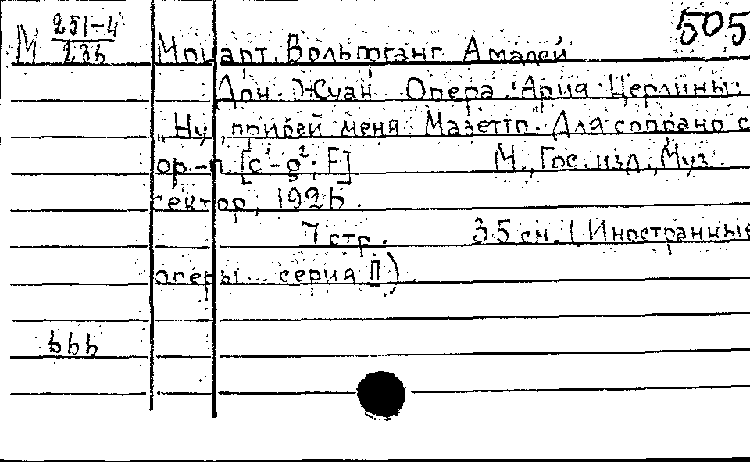 505
М 251-4
236
Моцарт, Вольфганг Амадей
Дон Жуан Опера. Ария Церлины:
"Ну прибей меня Мазетто". Для сопрано с
ор-п. [c¹-g²; F] М., Гос. изд., Муз.
сектор, 1926.
7 стр. 35 см. (Иностранные
оперы... серия II)